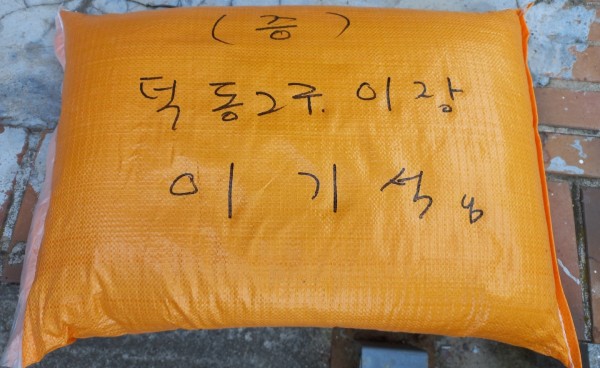 (증)
덕동2구. 이장
이 기 석